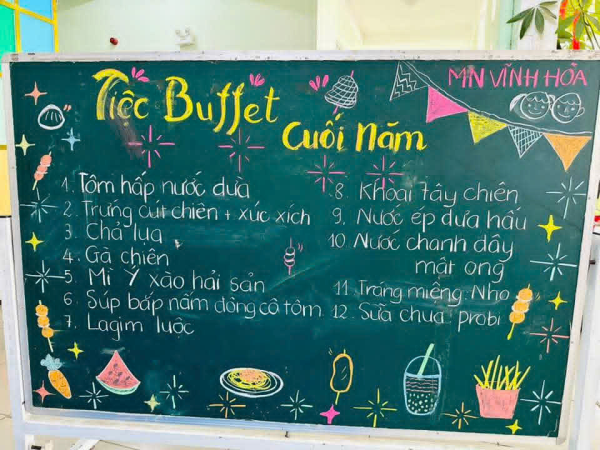 Tiệc Buffet
Cuối Năm
MN VĨNH HÒA
1. Tôm hấp nước dừa
2. Trứng cút chiên + xúc xích
3. Chả lụa
4. Gà chiên
5. Mì Ý xào hải sản
6. Súp bắp nấm đông cô tôm
7. Lagim luộc
8. Khoai tây chiên
9. Nước ép dưa hấu
10. Nước chanh dây
mật ong
11. Tráng miệng: Nho
12. Sữa chua probi